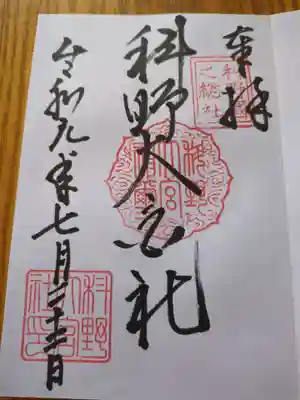 奉拝
之総社
科野大宮社
令和元年七月二十日
科野
大宮
社印